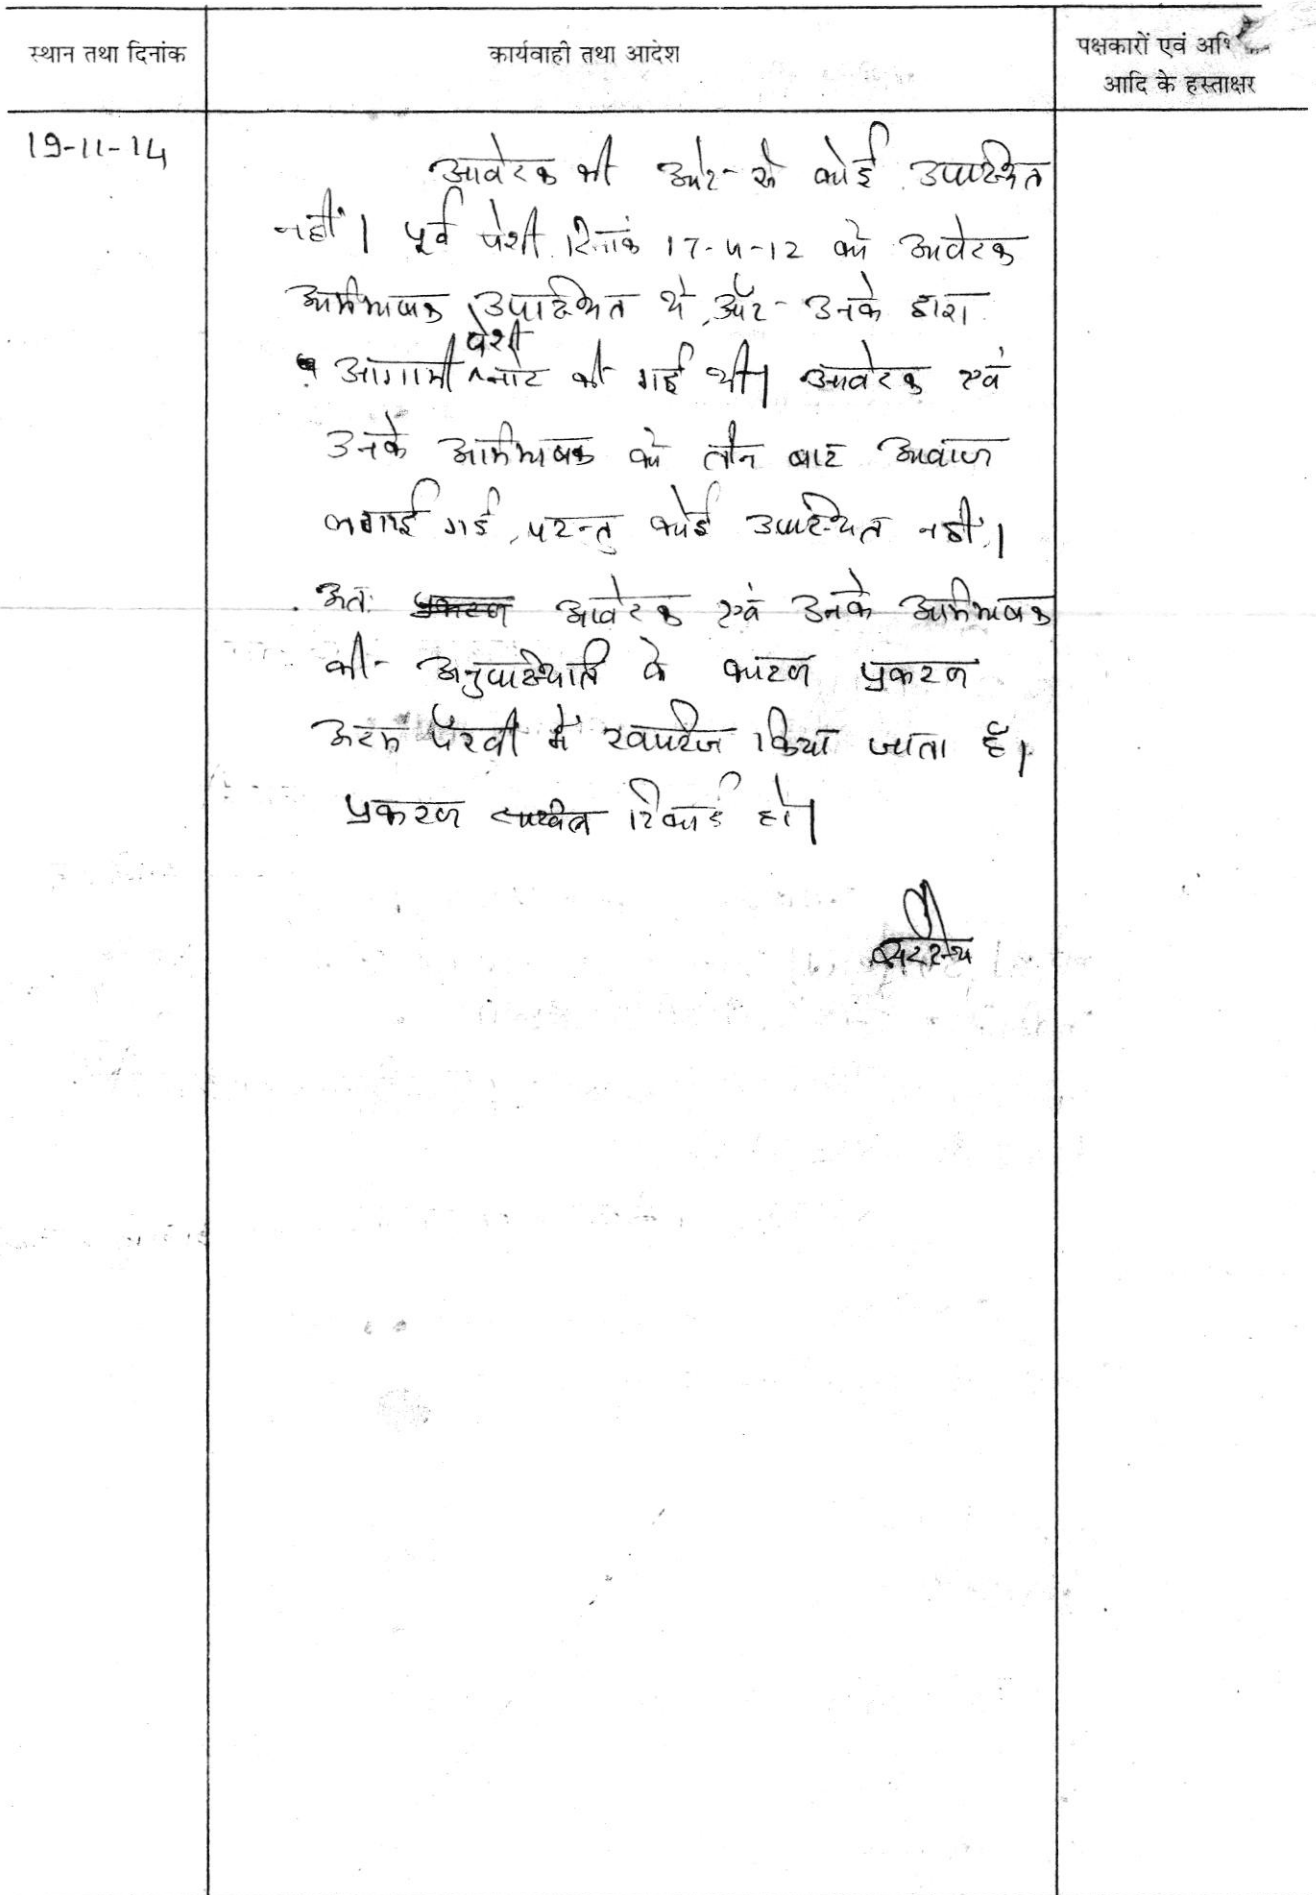 स्थान तथा दिनांक
कार्यवाही तथा आदेश
पक्षकारों एवं अभि
आदि के हस्ताक्षर
19-11-14
आवेदक की ओर से कोई उपस्थित
नहीं। पूर्व पेशी दिनांक 17-4-12 को आवेदक
अभिभाषक उपस्थित थे, और उनके द्वारा
पेशी
आगामी ^ नोट की गई थी। आवेदक एवं
उनके अभिभाषक को तीन बार आवाज
लगाई गई, परन्तु कोई उपस्थित नहीं।
अतः प्रकरण आवेदक एवं उनके अभिभाषक
की अनुपस्थिति के कारण प्रकरण
अदम पैरवी में खारिज किया जाता है।
प्रकरण दाखिल रिकार्ड हो।
सदस्य